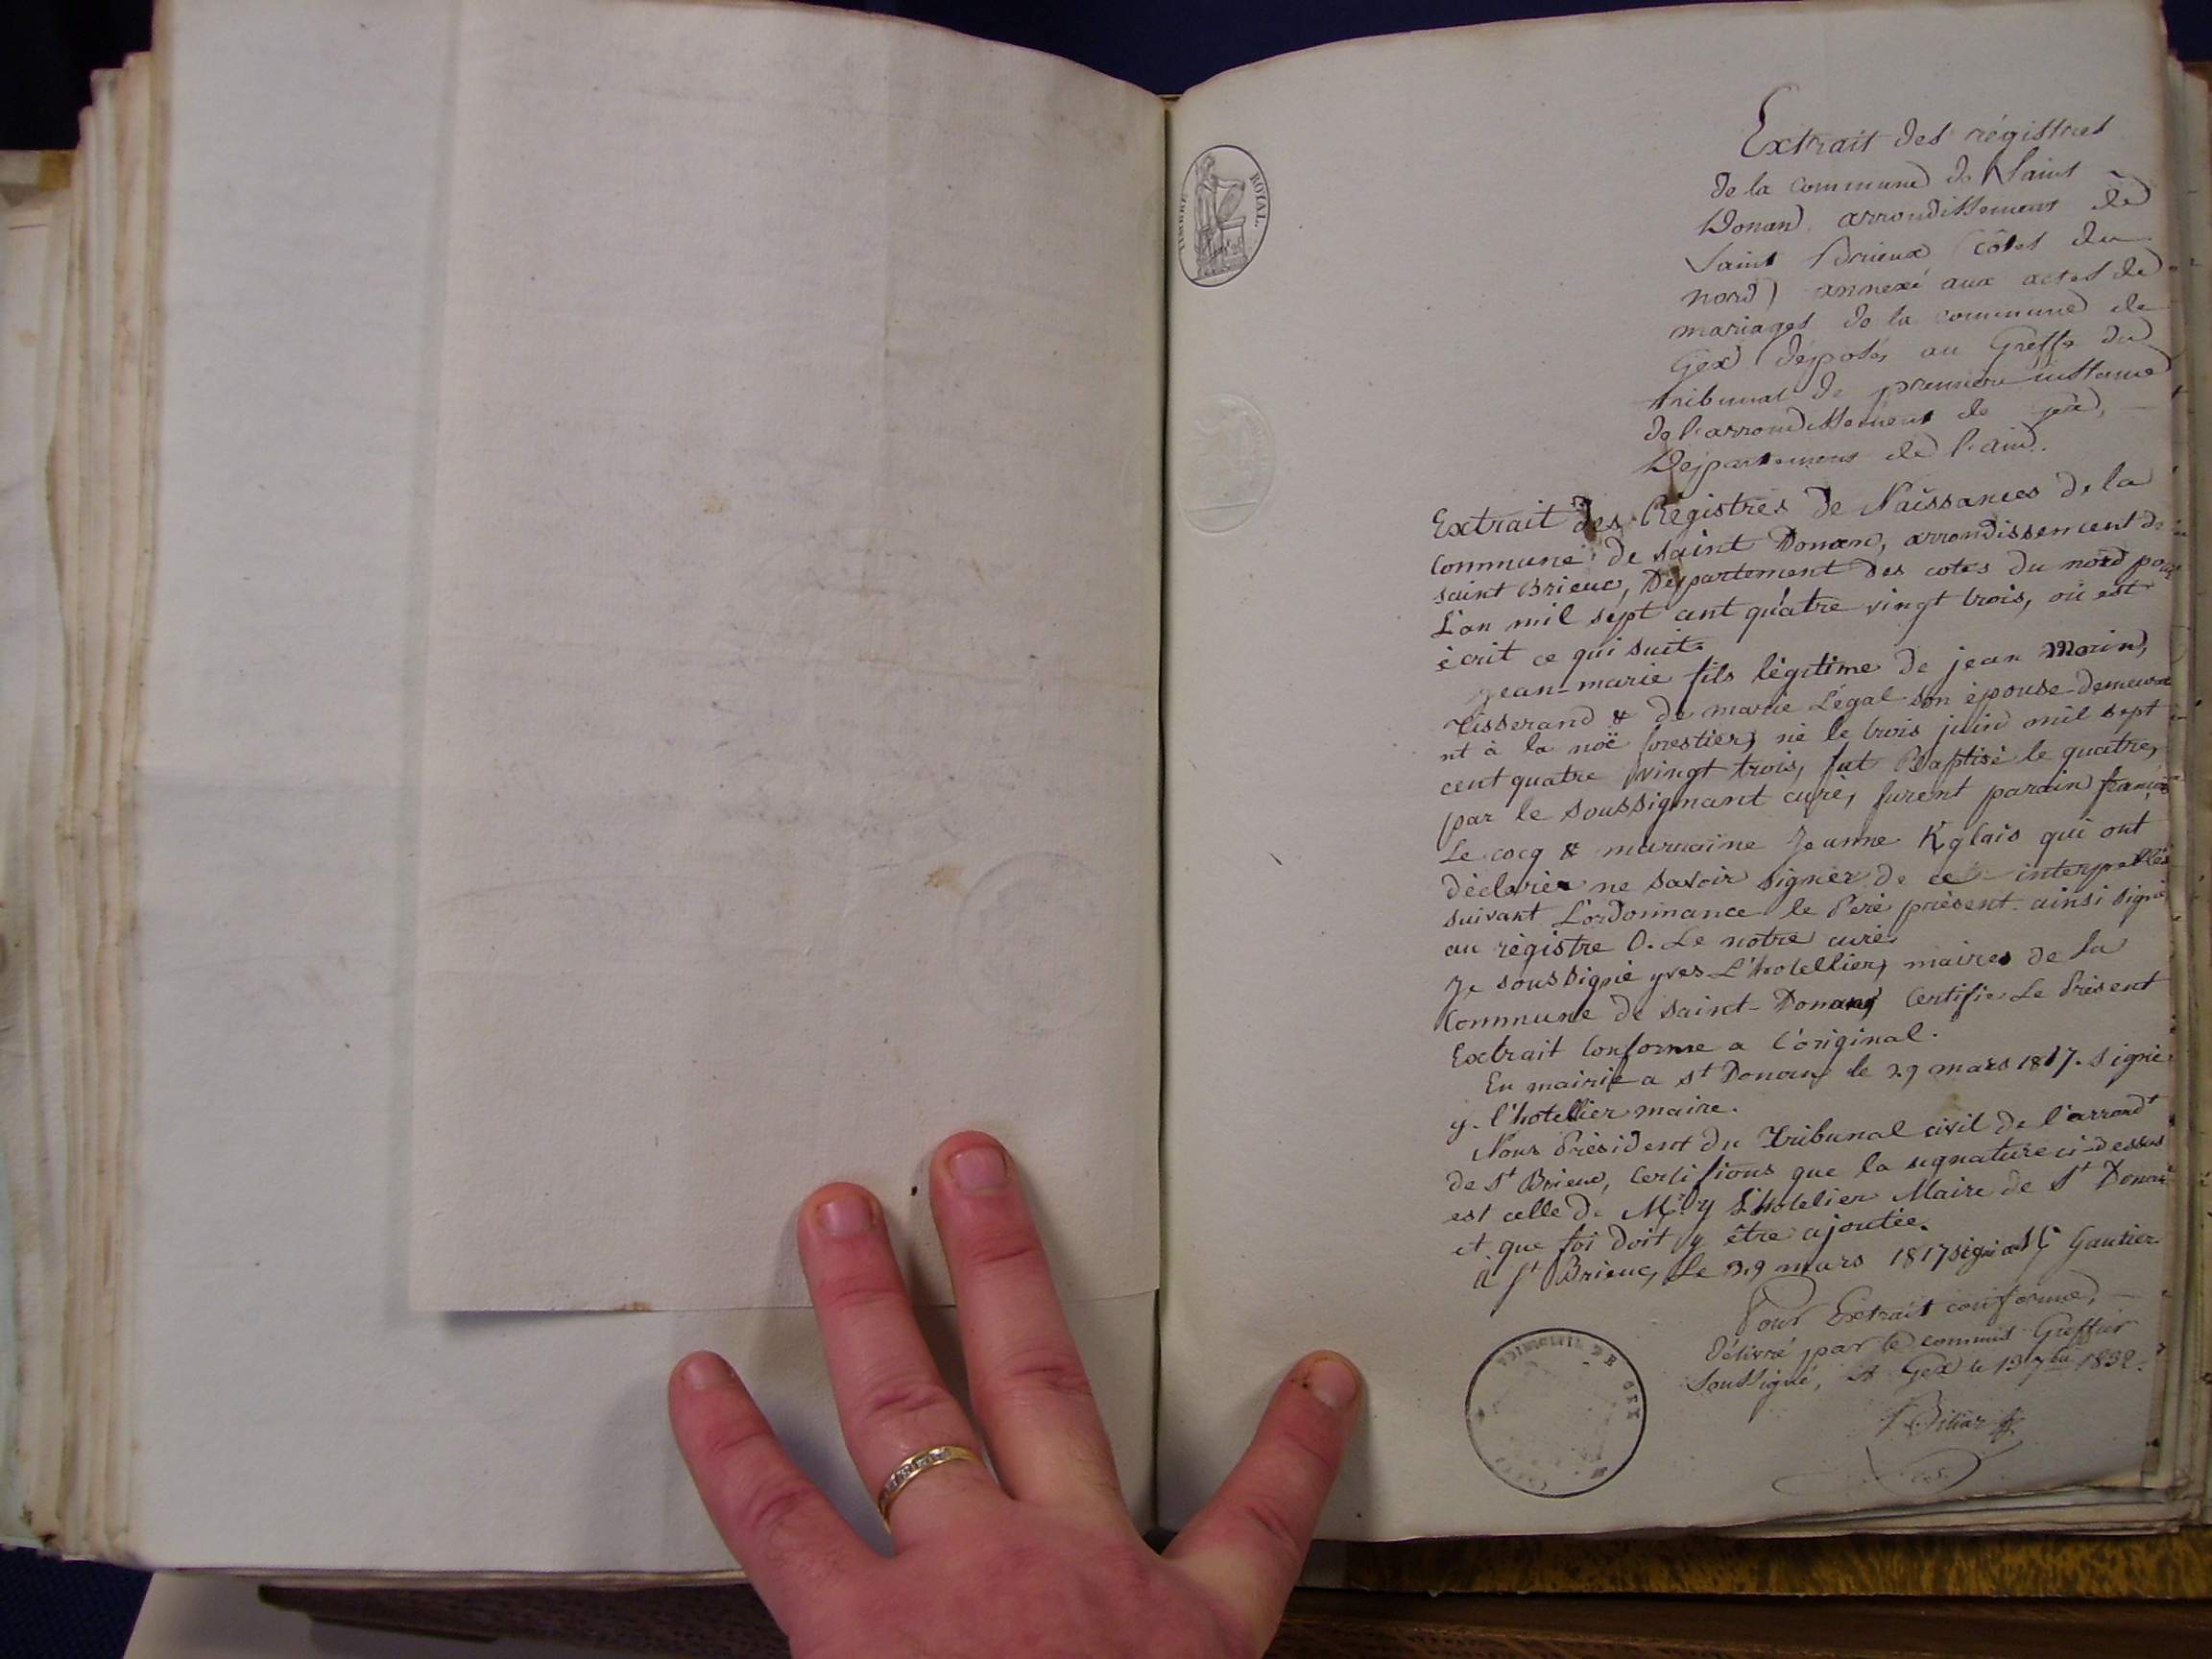 TIMBRE ROYAL
Extrait des régistres
de la commune de Saint
Donan arrondissement de
Saint Brieux (côtes du
nord) annexé aux actes de
mariages de la commune de
Gex déposés au Greffe du
tribunal de première instance
de l'arrondissement de gex,
Département de l'ain.
Extrait des Régistres de Naissances de la
commune de saint Donan, arrondissement de
saint Brieuc, Département des cotes du nord pour
L'an mil sept cent quatre vingt trois, où est
écrit ce qui suit.
jean-marie fils légitime de jean Morin,
Tisserand & de marie Légal son épouse demeura
nt à la noë forestier, né le trois juin mil sept
cent quatre vingt trois, fut Baptisé le quatre,
par le soussignant curé, furent parain françois
Le cocq & maraine Jeanne Kglais qui ont
déclarér ne savoir signer de ce interpellés
suivant L'ordonnance le Pere présent. ainsi signé
au règistre O. Le notre curé
Je soussigné yves L'hotellier, maire de la
Commune de saint-Donan, Certifie Le Présent
Extrait Conforme a l'original.
En mairie a st Donan le 29 mars 1817. signé
y. l'hotellier maire.
Nous Président du Tribunal civil de l'arrondt
de St Brieuc, Certifions que la signature ci-dessus
est celle de Mr. y L'hotelier Maire de St Donan
et que foi doit y être ajoutée.
à St Brieuc, Le 29 mars 1817 signé Gautier
Pour Extrait conforme,
délivré par le commis Greffier
soussigné, A Gex le 13 7bre 1832.
DE GEX